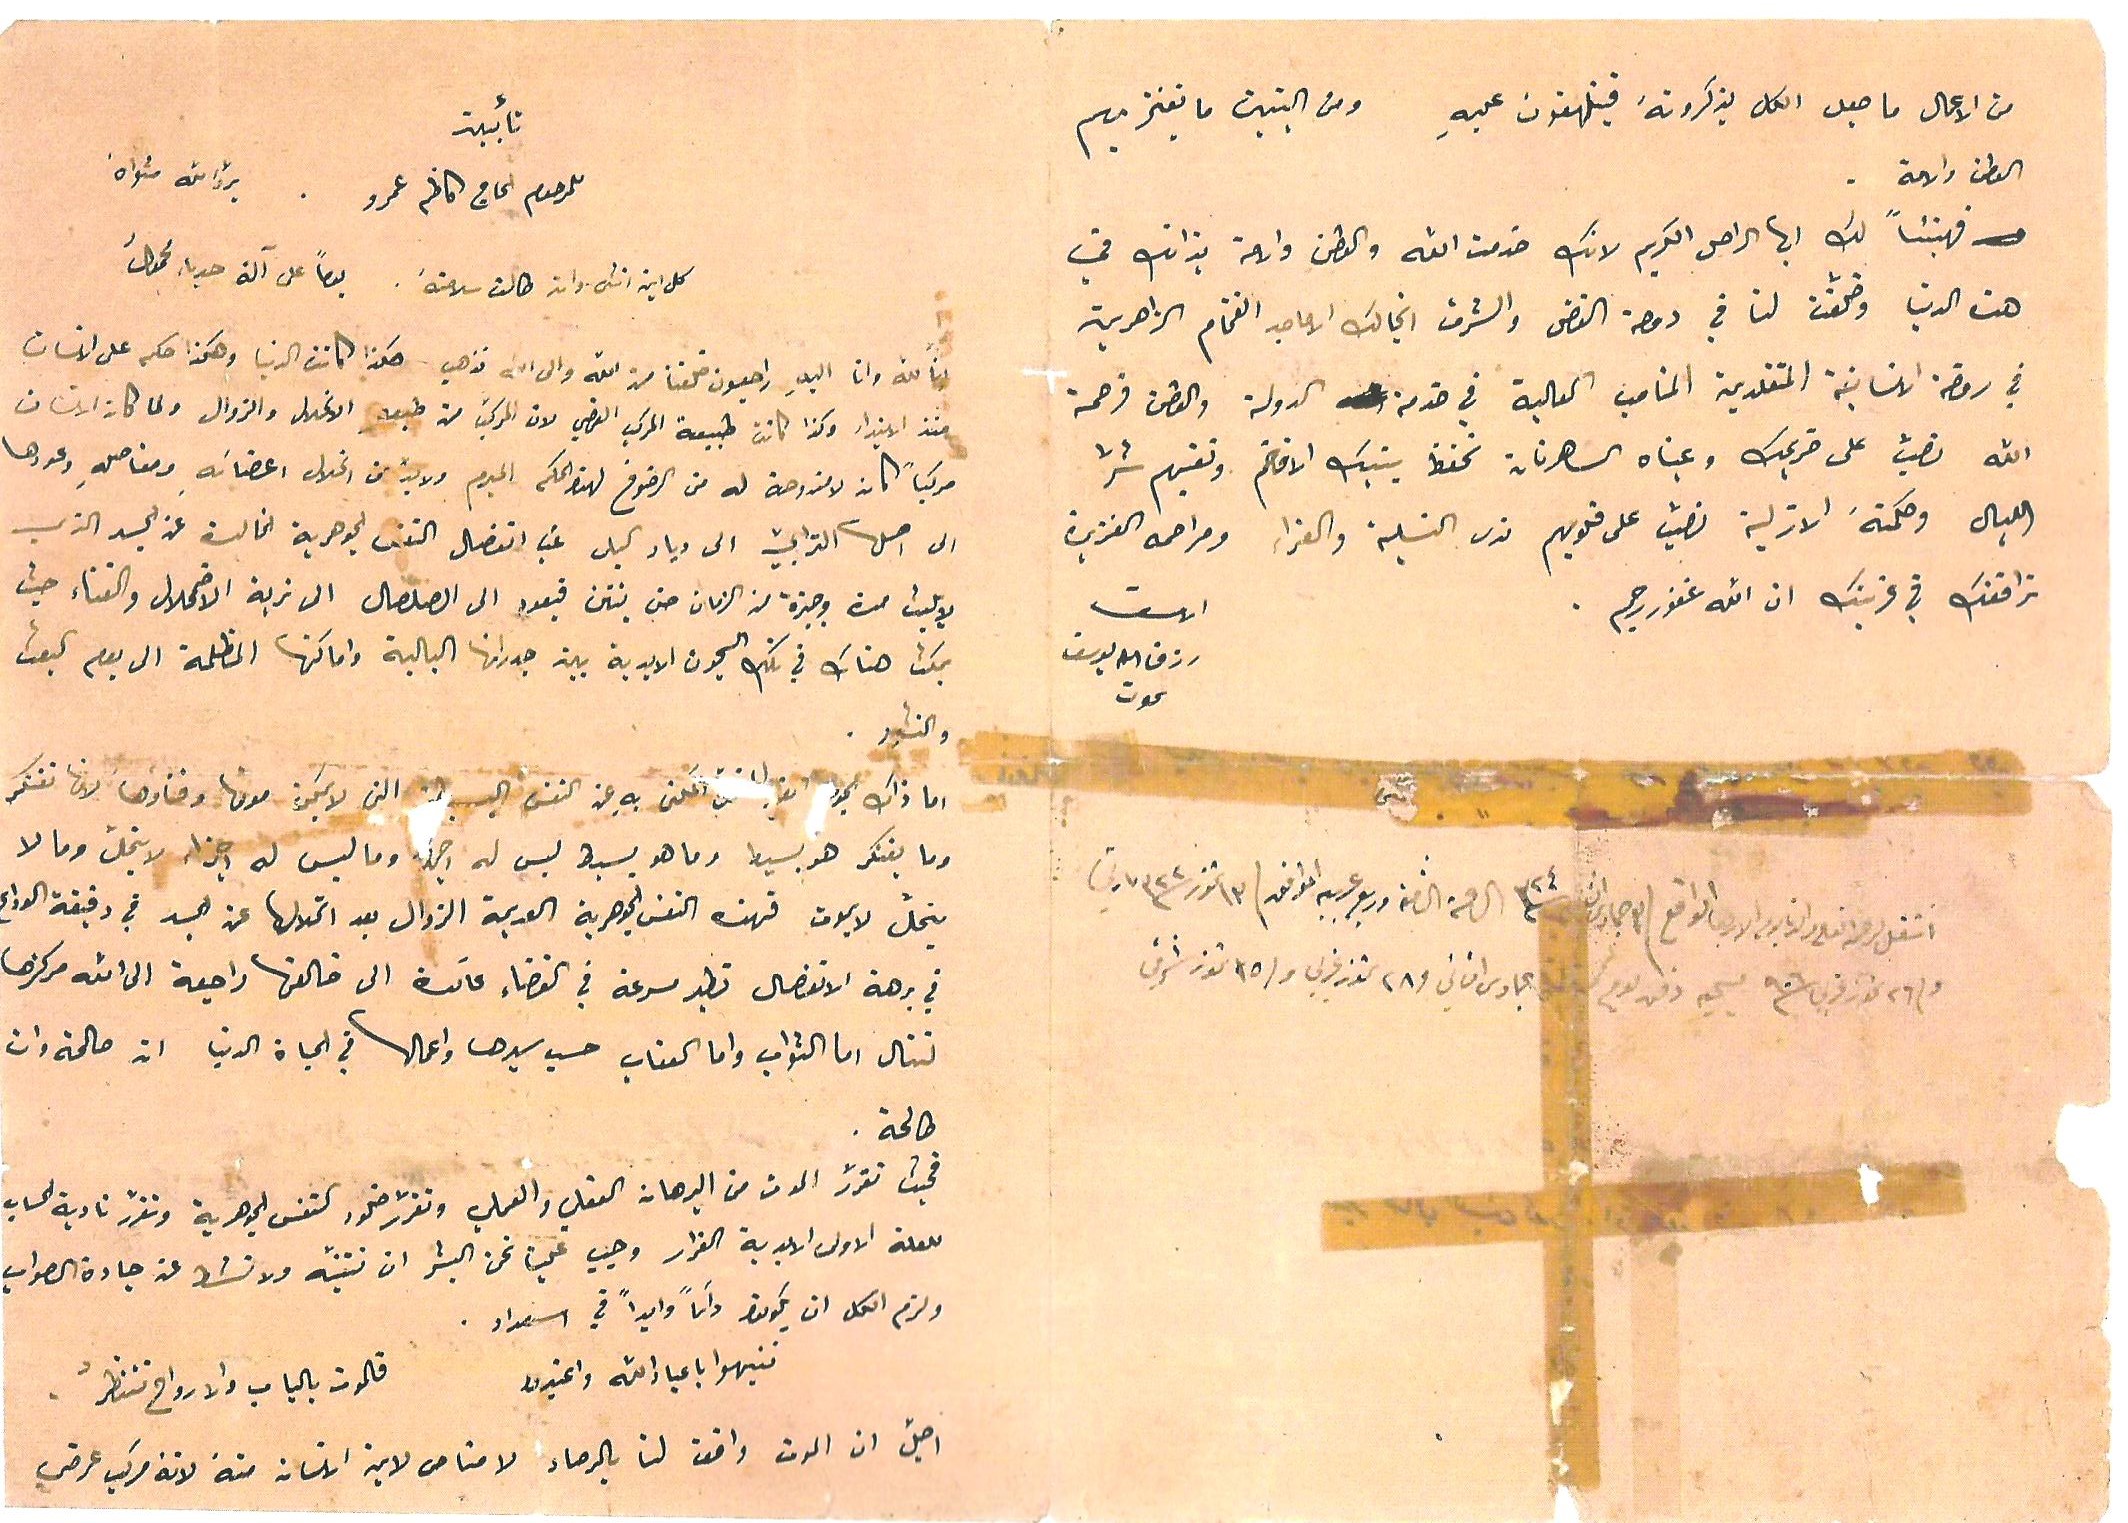 تأبين
للمرحوم الحاج كاظم عمرو . برّد الله مثواهُ
كل ابن انثى وان طالت سلامتهُ . يوماً على آلة حدباء محمولُ
انا لله وانا اليهِ راجعون خلقنا من الله والى الله نذهب هكذا كانت الدنيا وهكذا حكم على الانسان
منذ الابتداء وكذا كانت طبيعة المركب العرضي لان المركب من طبعهِ الانحلال والزوال ولما كان الانسان
مركباً كان لا مندوحة له من الرضوخ لهذا الحكم المبرم ولا بدّ من انحلال اعضائهِ ومفاصلهِ وعودها
الى اصلها الترابيّ الى ديار البلى غبّ انفصال النفس الجوهرية الخالدة عن الجسد الذي
لا يلبث مدة وجيزة من الزمان حتى ينتن فيعود الى الصلصال الى تربة الاضمحلال والفناء حيث
يمكث هناك في تلك السجون الابدية بين جدرانها البالية واماكنها المظلمة الى يوم البعث
والنشور .
اما ذاك الجوهر المكنى به عن النفس البسيطة التي لا يمكن موتها وفناؤها لانها تفتكر
وما يفتكر هو بسيط وما هو بسيط ليس له اجزاء وما ليس له اجزاء لا ينحلّ وما لا
ينحلّ لا يموت فهذه النفس الجوهرية العديمة الزوال بعد انحلالها عن الجسد في دقيقة الوداع
في برهة الانفصال تطير مسرعة في الفضاء عائدة الى خالقها راجعة الى الله مركزها
لتنال اما الثواب واما العقاب حسب سيرها واعمالها في الحياة الدنيا ان صالحة وان
طالحة .
فحيث تقررّ الموت من البرهان العقلي والعملي وتقررّ خلود النفس الجوهرية وتقررّ تادية الحساب
للعلة الاولى الابدية القرار وجب علينا نحن البشر ان نتنبّه ولا نشط عن جادة الصواب
ولزم الكل ان يكونوا دائماً وابداً في استعداد .
تنبهوا يا عباد الله واعتبروا فالموت بالباب والارواح تنتظرُ .
اجلّ ان الموت واقف لنا بالمرصاد لا مناص لابن الانسان منهُ لانهُ مركب عرضي
من الاعمال ما جعل الكل يذكرونهُ فيتلهفون عليهِ ومن البنين ما يفتخر بهم
الوطن والامة .
فهنيئاً لك ايها الراحل الكريم لانك خدمت الله والوطن والامة بذاتك في
هذه الدنيا وخلّفت لنا في دوحة الفضل والشرف انجالك الاماجد الفخام الزاهرين
في روضة الانسانية المتقلدين المناصب العالية في خدمة الدولة والوطن فرحمة
الله تصبّ على ضريحك وعيناه الساهرتان تحفظ بنيك الافاخم وتقيهم شرّ
الليال وحكمتهُ الازلية تصبّ على قلوبهم ندى التسلية والعزاء ومراحمه الغزيرة
ترافقك في غربتك ان الله غفور رحيم .
الاسف
رزق الله يوسف
انتقل لرحمة الواقع الموافق ١٣ تموز
و ٢٦ تموز غربي دفن يوم جمادى الثاني و ٢٨ تموز غربي و ١٥ تموز شرقي